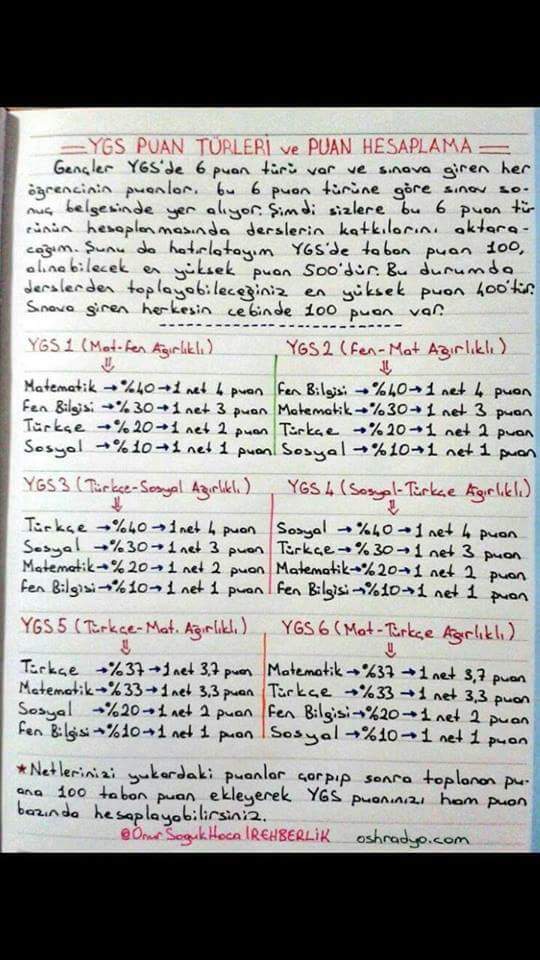 YGS PUAN TÜRLERİ ve PUAN HESAPLAMA
Gençler YGS'de 6 puan türü var ve sınava giren her
öğrencinin puanları, bu 6 puan türüne göre sınav so-
nuç belgesinde yer alıyor. Şimdi sizlere bu 6 puan tü-
rünün hesaplamasında derslerin katkılarını aktara-
cağım. Şunu da hatırlatayım YGS'de taban puan 100,
alınabilecek en yüksek puan 500'dür. Bu durumda
derslerden toplayabileceğiniz en yüksek puan 400'tür.
Sınava giren herkesin cebinde 100 puan var.
YGS 1 (Mat-Fen Ağırlıklı)
Matematik → %40 → 1 net 4 puan
Fen Bilgisi → %30 → 1 net 3 puan
Türkçe → %20 → 1 net 2 puan
Sosyal → %10 → 1 net 1 puan
YGS 2 (Fen-Mat Ağırlıklı)
Fen Bilgisi → %40 → 1 net 4 puan
Matematik → %30 → 1 net 3 puan
Türkçe → %20 → 1 net 2 puan
Sosyal → %10 → 1 net 1 puan
YGS 3 (Türkçe-Sosyal Ağırlıklı)
Türkçe → %40 → 1 net 4 puan
Sosyal → %30 → 1 net 3 puan
Matematik → %20 → 1 net 2 puan
Fen Bilgisi → %10 → 1 net 1 puan
YGS 4 (Sosyal-Türkçe Ağırlıklı)
Sosyal → %40 → 1 net 4 puan
Türkçe → %30 → 1 net 3 puan
Matematik → %20 → 1 net 2 puan
Fen Bilgisi → %10 → 1 net 1 puan
YGS 5 (Türkçe-Mat. Ağırlıklı)
Türkçe → %37 → 1 net 3,7 puan
Matematik → %33 → 1 net 3,3 puan
Sosyal → %20 → 1 net 2 puan
Fen Bilgisi → %10 → 1 net 1 puan
YGS 6 (Mat-Türkçe Ağırlıklı)
Matematik → %37 → 1 net 3,7 puan
Türkçe → %33 → 1 net 3,3 puan
Fen Bilgisi → %20 → 1 net 2 puan
Sosyal → %10 → 1 net 1 puan
★Netlerinizi yukardaki puanlar çarpıp sonra toplanan pu-
ana 100 taban puan ekleyerek YGS puanınızı ham puan
bazında hesaplayabilirsiniz.
@OnurSogukHoca1REHBERLİK oshradyo.com